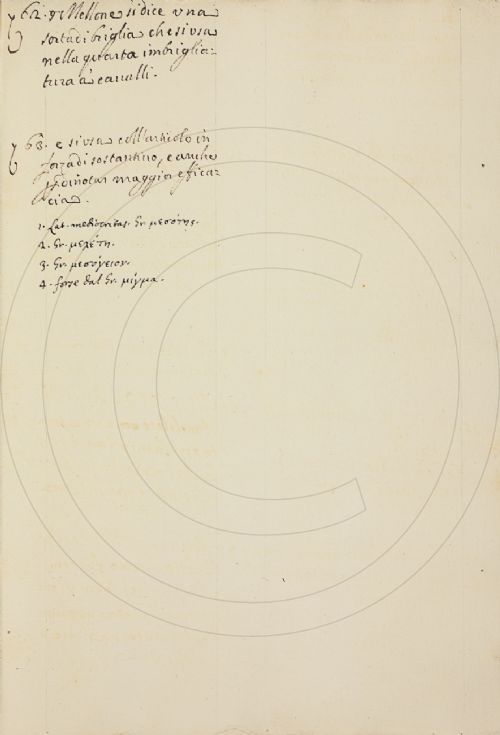 62. Mellone si dice una
sorta di briglia che si usa
nella quarta imbriglia:
tura à cavalli.
63. e si usa coll'articolo in
forza di sostantivo, e anche
dinotar maggior effica:
cia.
1. Lat. mediocritas. Gr. μεσότης.
2. Gr. μελέτη.
3. Gr. μεσόγειον.
4. forse dal Gr. μίγμα.